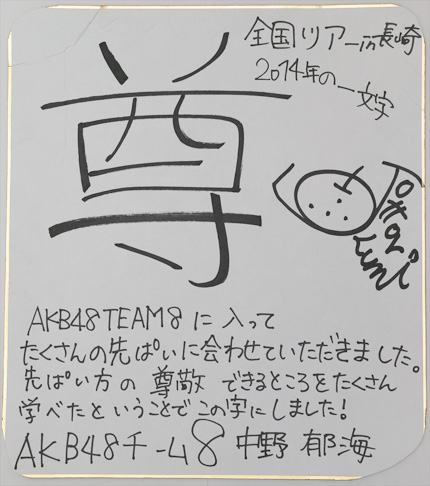 全国ツアーin長崎
2014年の一文字
尊
AKB48TEAM8に入って
たくさんの先ぱいに会わせていただきました。
先ぱい方の尊敬できるところをたくさん
学べたということでこの字にしました!
AKB48チーム8 中野郁海